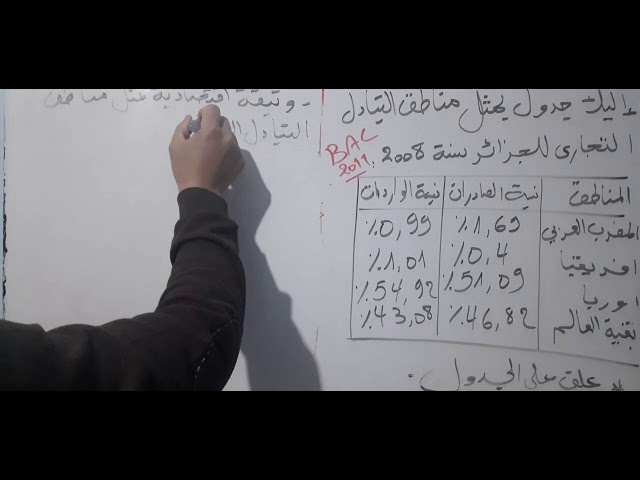 إليك جدول يمثل مناطق التبادل
التجاري للجزائر سنة 2008.
BAC
2011
المناطق نسبة الصادرات نسبة الواردات
المغرب العربي 1,69٪ 0,99٪
افريقيا 0,4٪ 1,01٪
أوربا 51,09٪ 54,92٪
بقية العالم 46,82٪ 43,08٪
* علق على الجدول.
- وثيقة اقتصادية تمثل مناطق
التبادل